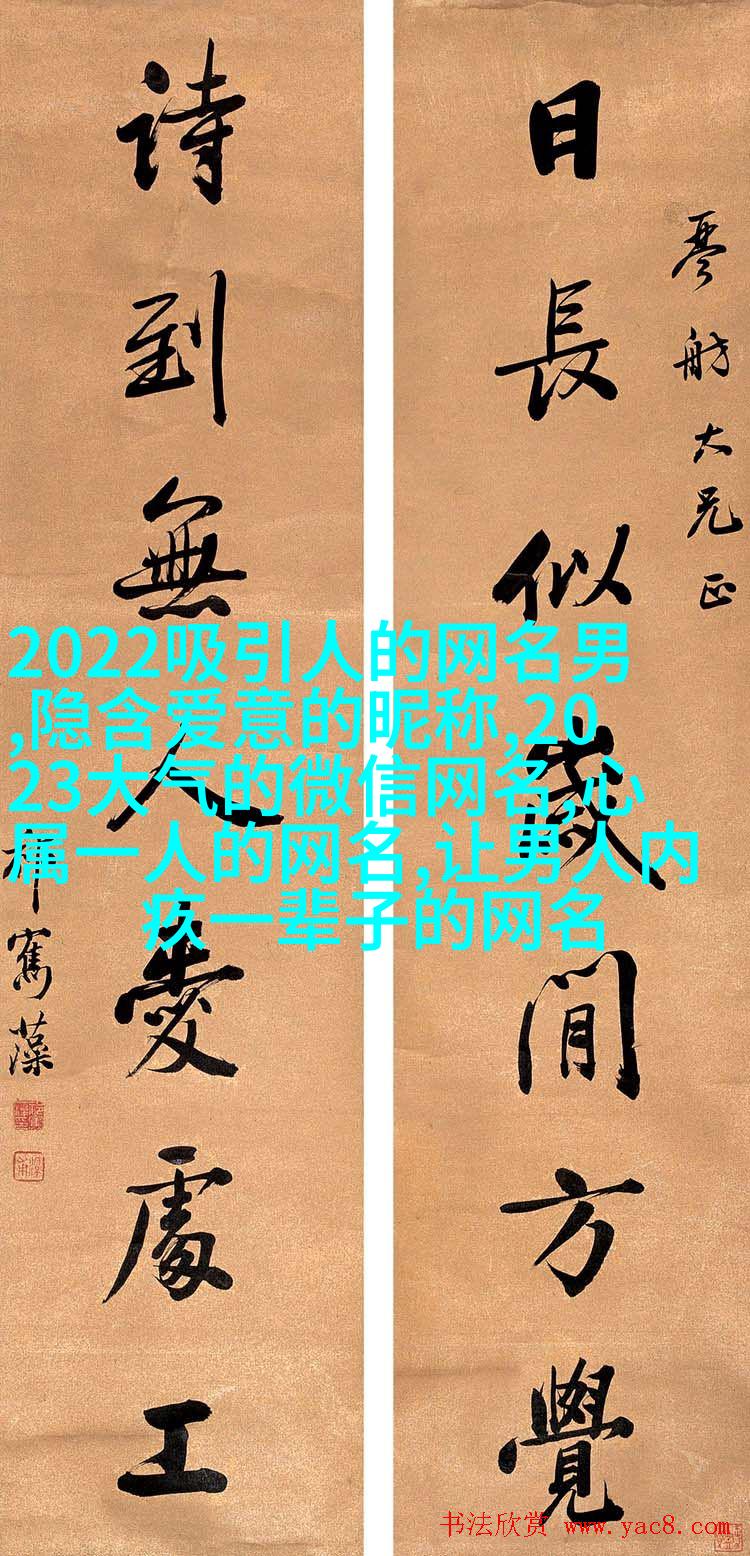 日長似歲閒方覺
琴舫大兄正
詩到無人愛處工
祁寯藻
2022吸引人的网名男
,隐含爱意的昵称,20
23大气的微信网名,心
属一人的网名,让男人内
疚一辈子的网名
书法欣赏 www.yac8.com